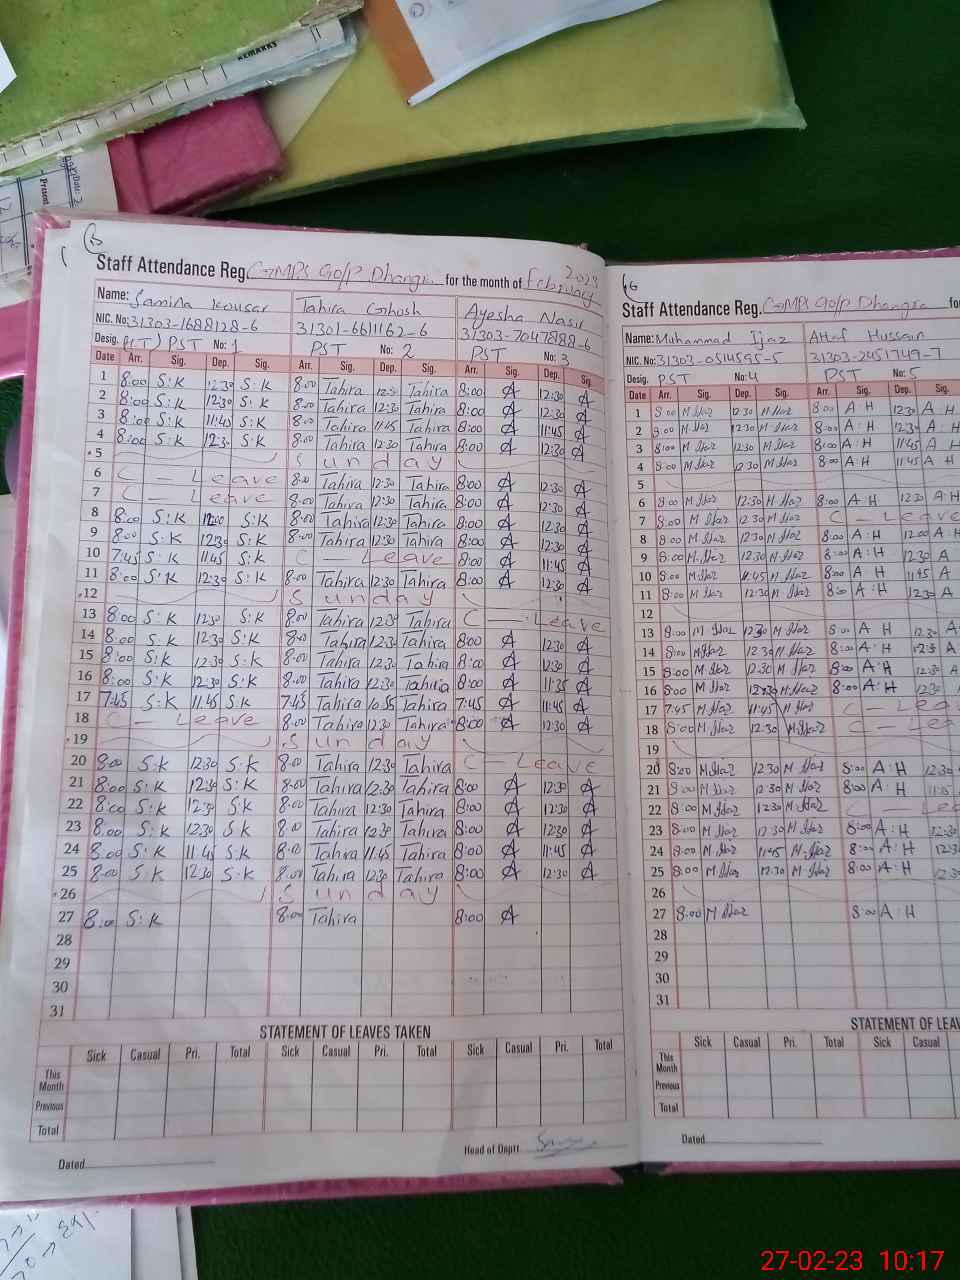 REMARKS
Present
Staff Attendance Reg. GMPS Go/P Dhangra for the month of February 2023
Name: Samina Kousar Tahira Ghosh Ayesha Nasir
NIC. No: 31303-1688128-6 31301-6611162-6 31303-7047888-6
Desig. (HT) PST No: 1 PST No: 2 PST No: 3
Date Arr. Sig. Dep. Sig. Arr. Sig. Dep. Sig. Arr. Sig. Dep. Sig.
1 8:00 S:K 12:30 S:K 8:00 Tahira 12:30 Tahira 8:00 A 12:30 A
2 8:00 S:K 12:30 S:K 8:00 Tahira 12:30 Tahira 8:00 A 12:30 A
3 8:00 S:K 11:45 S:K 8:00 Tahira 11:45 Tahira 8:00 A 11:45 A
4 8:00 S:K 12:30 S:K 8:00 Tahira 12:30 Tahira 8:00 A 12:30 A
5 Sunday
6 C - Leave 8:00 Tahira 12:30 Tahira 8:00 A 12:30 A
7 C - Leave 8:00 Tahira 12:30 Tahira 8:00 A 12:30 A
8 8:00 S:K 12:00 S:K 8:00 Tahira 12:30 Tahira 8:00 A 12:30 A
9 8:00 S:K 12:30 S:K 8:00 Tahira 12:30 Tahira 8:00 A 12:30 A
10 7:45 S:K 11:45 S:K C - Leave 8:00 A 11:45 A
11 8:00 S:K 12:30 S:K 8:00 Tahira 12:30 Tahira 8:00 A 12:30 A
12 Sunday
13 8:00 S:K 12:30 S:K 8:00 Tahira 12:30 Tahira C - Leave
14 8:00 S:K 12:30 S:K 8:00 Tahira 12:30 Tahira 8:00 A 12:30 A
15 8:00 S:K 12:30 S:K 8:00 Tahira 12:30 Tahira 8:00 A 12:30 A
16 8:00 S:K 12:30 S:K 8:00 Tahira 12:30 Tahira 8:00 A 11:35 A
17 7:45 S:K 11:45 S:K 7:45 Tahira 10:55 Tahira 7:45 A 11:45 A
18 C - Leave 8:00 Tahira 12:30 Tahira 8:00 A 12:30 A
19 Sunday
20 8:00 S:K 12:30 S:K 8:00 Tahira 12:30 Tahira C - Leave
21 8:00 S:K 12:30 S:K 8:00 Tahira 12:30 Tahira 8:00 A 12:30 A
22 8:00 S:K 12:30 S:K 8:00 Tahira 12:30 Tahira 8:00 A 12:30 A
23 8:00 S:K 12:30 S:K 8:00 Tahira 12:30 Tahira 8:00 A 12:30 A
24 8:00 S:K 11:45 S:K 8:00 Tahira 11:45 Tahira 8:00 A 11:45 A
25 8:00 S:K 12:30 S:K 8:00 Tahira 12:30 Tahira 8:00 A 12:30 A
26 Sunday
27 8:00 S:K 8:00 Tahira 8:00 A
28
29
30
31
STATEMENT OF LEAVES TAKEN
Sick Casual Pri. Total Sick Casual Pri. Total Sick Casual Pri. Total
This Month
Previous
Total
Dated Head of Deptt
Staff Attendance Reg. GMPS Go/P Dhangra for
Name: Muhammad Ijaz Altaf Hussain
NIC. No: 31303-0514595-5 31303-2451749-7
Desig. PST No: 4 PST No: 5
Date Arr. Sig. Dep. Sig. Arr. Sig. Dep. Sig.
1 8:00 M Ijaz 12:30 M Ijaz 8:00 A:H 12:30 A:H
2 8:00 M Ijaz 12:30 M Ijaz 8:00 A:H 12:30 A:
3 8:00 M Ijaz 12:30 M Ijaz 8:00 A:H 11:45 A H
4 8:00 M Ijaz 12:30 M Ijaz 8:00 A H 11:45 A H
5
6 8:00 M Ijaz 12:30 M Ijaz 8:00 A:H 12:30 A:H
7 8:00 M Ijaz 12:30 M Ijaz C - Leave
8 8:00 M Ijaz 12:30 M Ijaz 8:00 A:H 12:00 A:H
9 8:00 M Ijaz 12:30 M Ijaz 8:00 A:H 12:30 A
10 8:00 M Ijaz 11:45 M Ijaz 8:00 A H 11:45 A
11 8:00 M Ijaz 12:30 M Ijaz 8:00 A H 12:30 A
12
13 8:00 M Ijaz 12:30 M Ijaz 8:00 A H 12:30 A
14 8:00 M Ijaz 12:30 M Ijaz 8:00 A:H 12:30 A
15 8:00 M Ijaz 12:30 M Ijaz 8:00 A:H 12:30 A
16 8:00 M Ijaz 12:30 M Ijaz 8:00 A:H 12:30
17 7:45 M Ijaz 11:45 M Ijaz C - Lea
18 8:00 M Ijaz 12:30 M Ijaz C - Lea
19
20 8:00 M Ijaz 12:30 M Ijaz 8:00 A:H 12:30
21 8:00 M Ijaz 12:30 M Ijaz 8:00 A:H
22 8:00 M Ijaz 12:30 M Ijaz C - Lea
23 8:00 M Ijaz 12:30 M Ijaz 8:00 A:H 12:30
24 8:00 M Ijaz 11:45 M Ijaz 8:00 A:H 12:3
25 8:00 M Ijaz 12:30 M Ijaz 8:00 A:H 12:30
26
27 8:00 M Ijaz 8:00 A:H
28
29
30
31
STATEMENT OF LEAV
Sick Casual Pri. Total Sick Casual
This Month
Previous
Total
Dated
27-02-23 10:17